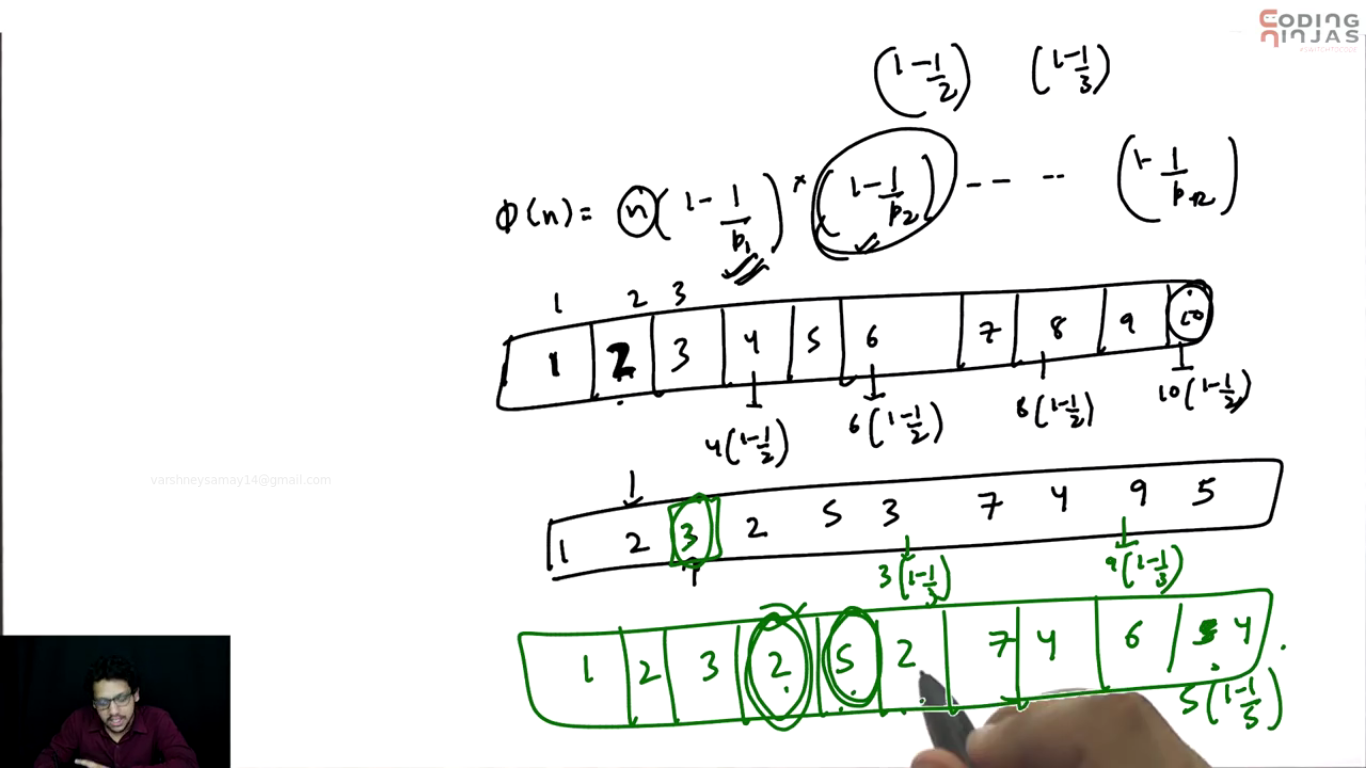 CODING
NINJAS
#SWITCHTOCODE
(1-1/2) (1-1/3)
φ(n) = n(1-1/p₁) * (1-1/p₂) -- -- (1-1/pₖ)
1 2 3
1 2 3 4 5 6 7 8 9 10
4(1-1/2) 6(1-1/2) 8(1-1/2) 10(1-1/2)
varshneysamay14@gmail.com
1 2 3 2 5 3 7 4 9 5
3(1-1/3) 9(1-1/3)
1 2 3 2 5 2 7 4 6 4
5(1-1/5)